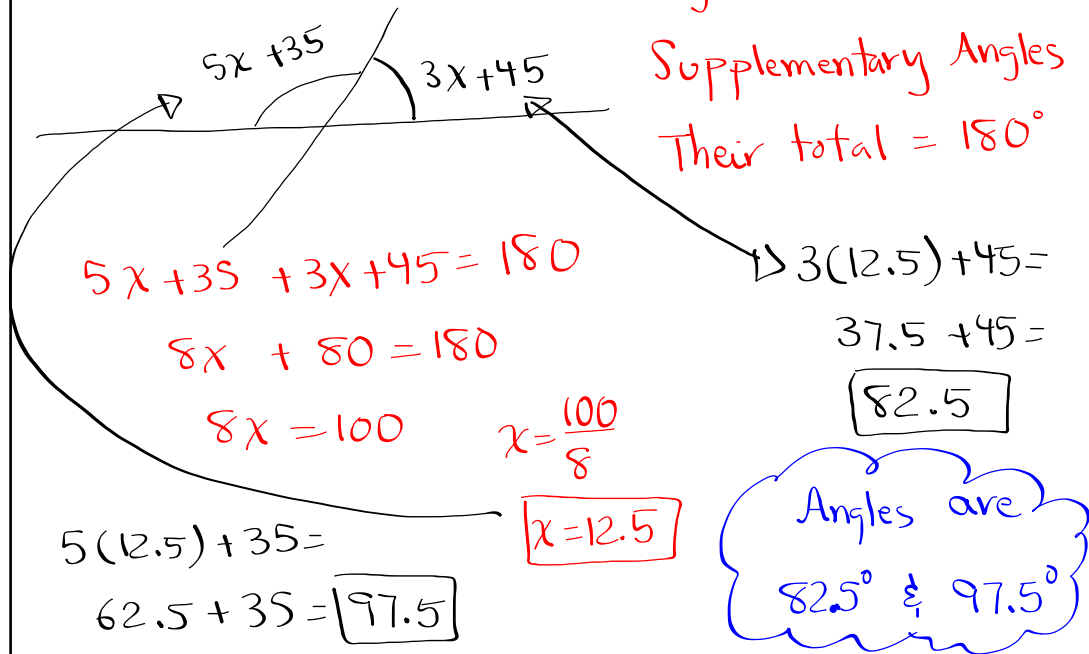 5x +35
3x+45
Supplementary Angles
Their total = 180°
5x+35 +3x+45=180
8x + 80 =180
8x =100
x=100/8
x=12.5
3(12.5)+45=
37.5 +45=
82.5
5(12.5)+35=
62.5 + 35 = 97.5
Angles are
82.5° & 97.5°